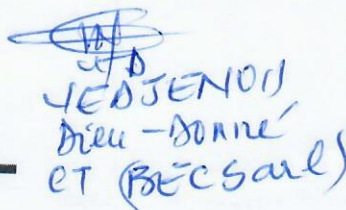 YEDJENOU
Dieu-Donné
CT (BECSarl)